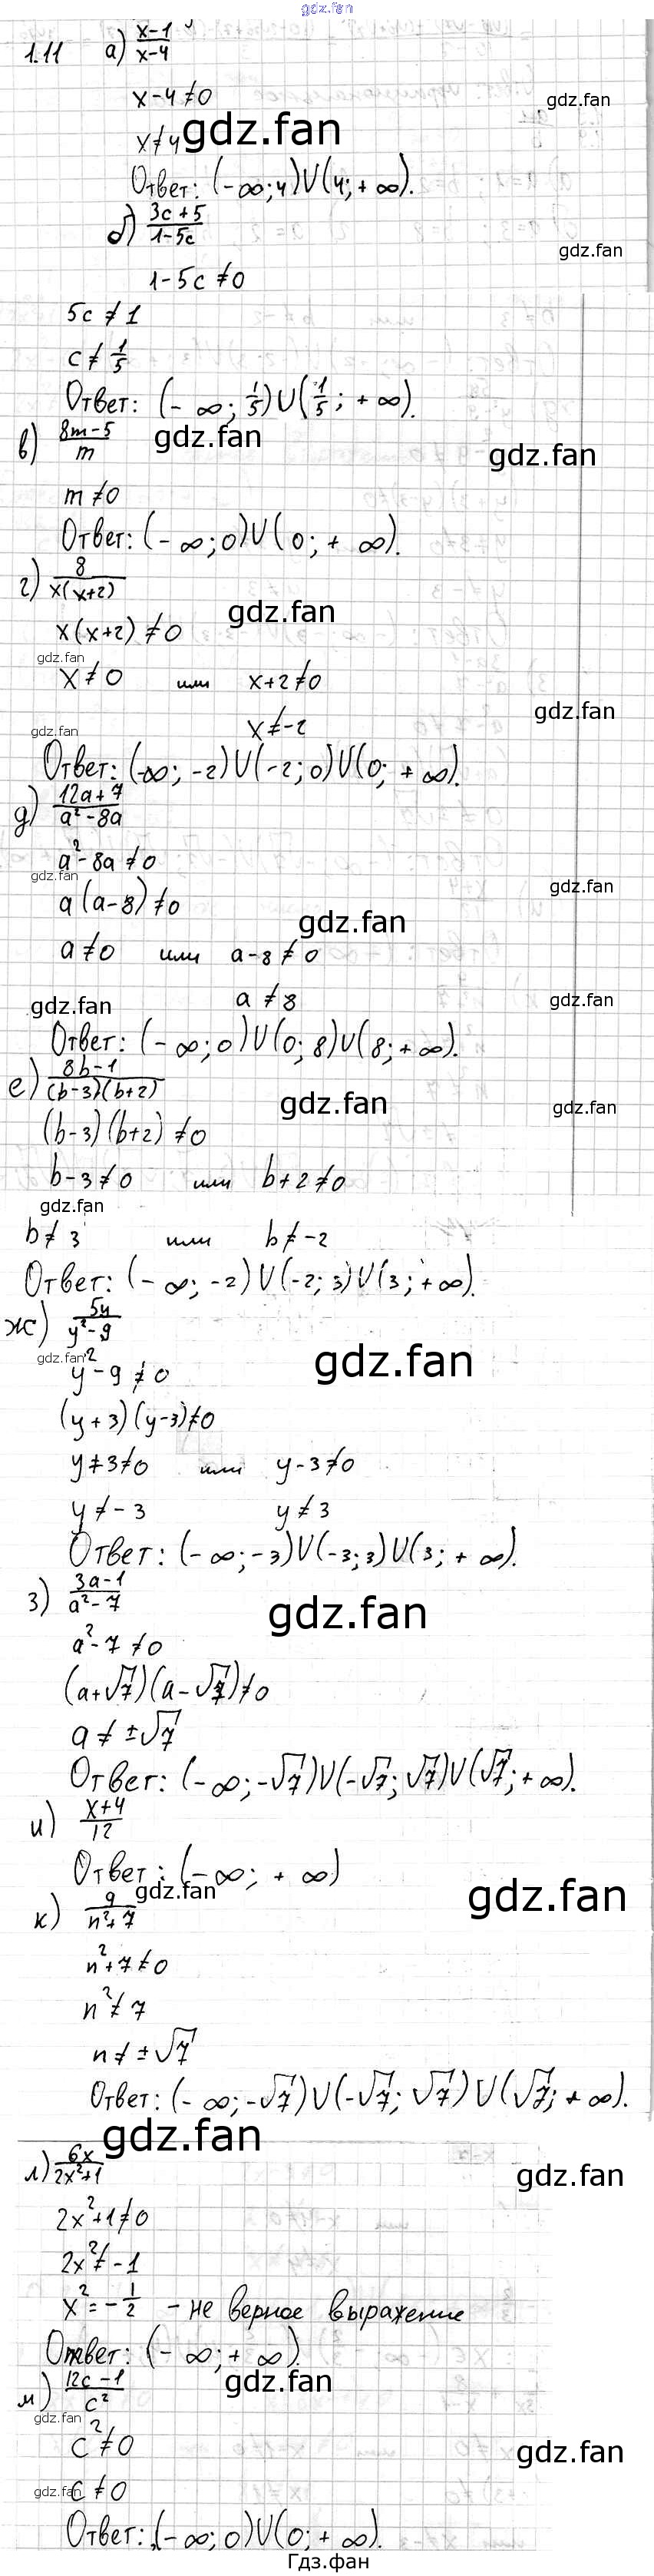 gdz.fan
1.11 а) x-1/x-4
x-4≠0
x≠4
gdz.fan
gdz.fan
Ответ: (-∞;4)∪(4;+∞).
б) 3c+5/1-5c
gdz.fan
1-5c≠0
5c≠1
c≠1/5
Ответ: (-∞;1/5)∪(1/5;+∞).
в) 8m-5/m
gdz.fan
gdz.fan
m≠0
Ответ: (-∞;0)∪(0;+∞).
г) 8/x(x+2)
gdz.fan
x(x+2)≠0
gdz.fan
x≠0 или x+2≠0
gdz.fan
x≠-2
gdz.fan
Ответ: (-∞;-2)∪(-2;0)∪(0;+∞).
д) 12a+7/a²-8a
a²-8a≠0
gdz.fan
gdz.fan
a(a-8)≠0
gdz.fan
a≠0 или a-8≠0
a≠8
gdz.fan
gdz.fan
Ответ: (-∞;0)∪(0;8)∪(8;+∞).
е) 8b-1/(b-3)(b+2)
gdz.fan
gdz.fan
(b-3)(b+2)≠0
b-3≠0 или b+2≠0
gdz.fan
b≠3 или b≠-2
Ответ: (-∞;-2)∪(-2;3)∪(3;+∞).
ж) 5y/y²-9
gdz.fan
gdz.fan
y²-9≠0
(y+3)(y-3)≠0
y+3≠0 или y-3≠0
y≠-3 y≠3
Ответ: (-∞;-3)∪(-3;3)∪(3;+∞).
з) 3a-1/a²-7
gdz.fan
a²-7≠0
(a+√7)(a-√7)≠0
a≠±√7
Ответ: (-∞;-√7)∪(-√7;√7)∪(√7;+∞).
и) x+4/12
Ответ: (-∞;+∞)
gdz.fan
gdz.fan
к) 9/n²+7
n²+7≠0
n²≠7
n≠±√7
Ответ: (-∞;-√7)∪(-√7;√7)∪(√7;+∞).
gdz.fan
л) 6x/2x²+1
gdz.fan
2x²+1≠0
2x²≠-1
x²=-1/2 - не верное выражение
Ответ: (-∞;+∞).
gdz.fan
м) 12c-1/c²
gdz.fan
c²≠0
gdz.fan
gdz.fan
c≠0
Ответ: (-∞;0)∪(0;+∞).
Гдз.фан